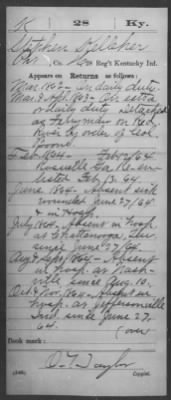 K 28 Ky.
Stephen Kelleher
Co. 28 Reg't Kentucky Inf.
Appears on Returns as follows:
Mar. 1862 On daily duty.
Mar & Apl. 1863 On extra
or daily duty detached
as ferryman on Red
River by order of Col.
Boone.
Feb. 1864. Feb 12/64
Rossville Ga. Re-en-
listed Feb. 13. 64.
June 1864 Absent sick
wounded June 27/64
& in Hosp.
July 1864 Absent in hosp.
at Chattanooga Tenn
since June 27/64.
Aug & Sept, 1864 Absent
in hosp. at Nash-
ville since Aug. 10.
Oct & Nov. 1864 Absent in
hosp. at Jeffersonville
Ind. since June 27.
64.
(over
Book mark:
O. T. Taylor
Copyist.